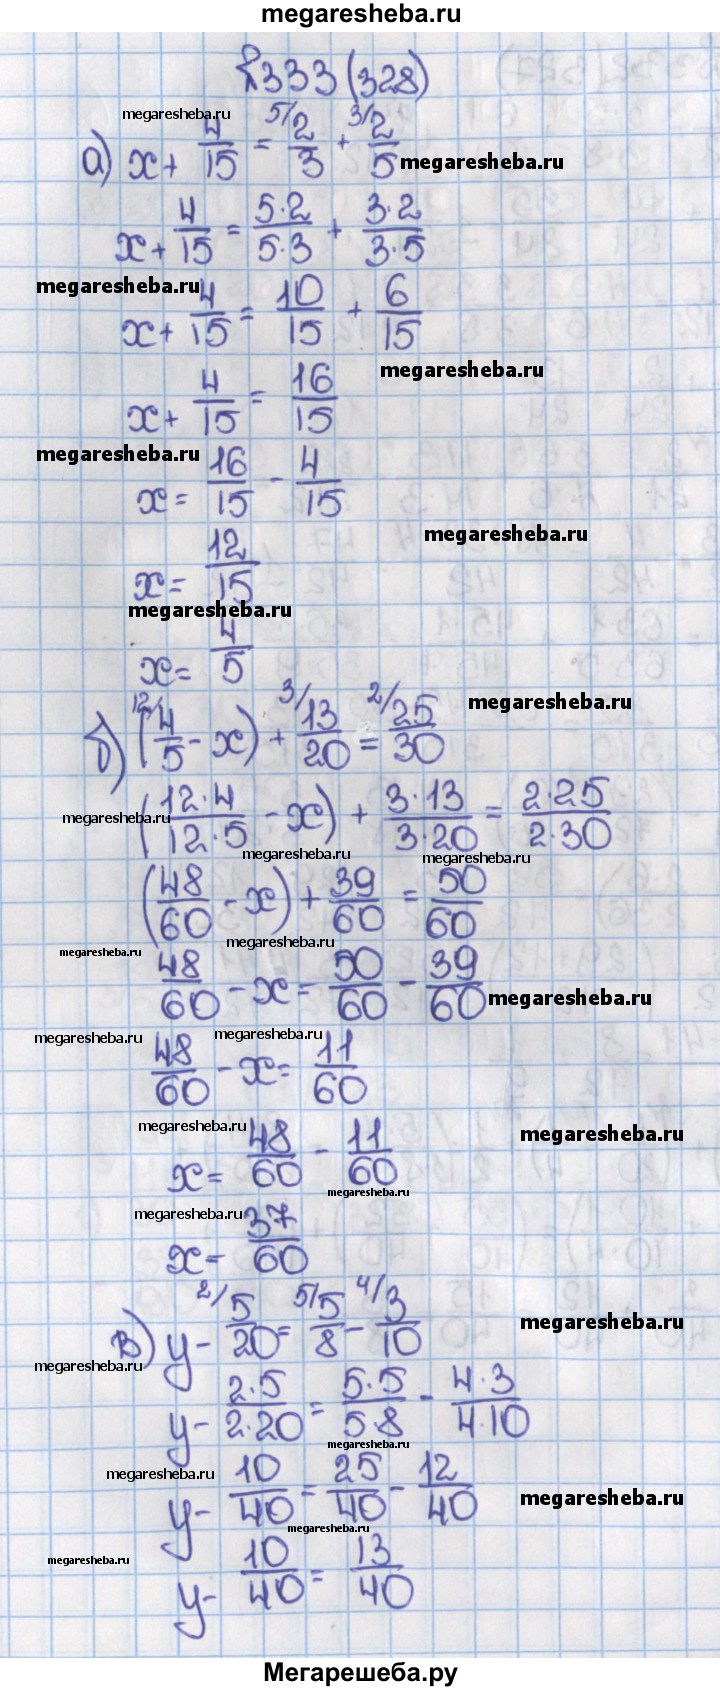 megaresheba.ru
№333(328)
megaresheba.ru
а) x + 4/15 = 5/ 2/3 + 3/ 2/5
megaresheba.ru
x + 4/15 = 5·2/5·3 + 3·2/3·5
megaresheba.ru
x + 4/15 = 10/15 + 6/15
megaresheba.ru
x + 4/15 = 16/15
megaresheba.ru
x = 16/15 - 4/15
megaresheba.ru
x = 12/15
megaresheba.ru
x = 4/5
megaresheba.ru
б) (12/ 4/5 - x) + 3/ 13/20 = 2/ 25/30
megaresheba.ru
(12·4/12·5 - x) + 3·13/3·20 = 2·25/2·30
megaresheba.ru
megaresheba.ru
(48/60 - x) + 39/60 = 50/60
megaresheba.ru
megaresheba.ru
48/60 - x = 50/60 - 39/60
megaresheba.ru
megaresheba.ru
megaresheba.ru
48/60 - x = 11/60
megaresheba.ru
megaresheba.ru
x = 48/60 - 11/60
megaresheba.ru
megaresheba.ru
x = 37/60
megaresheba.ru
в) y - 2/ 5/20 = 5/ 5/8 - 4/ 3/10
megaresheba.ru
megaresheba.ru
y - 2·5/2·20 = 5·5/5·8 - 4·3/4·10
megaresheba.ru
megaresheba.ru
y - 10/40 = 25/40 - 12/40
megaresheba.ru
megaresheba.ru
megaresheba.ru
y - 10/40 = 13/40
Мегарешеба.ру